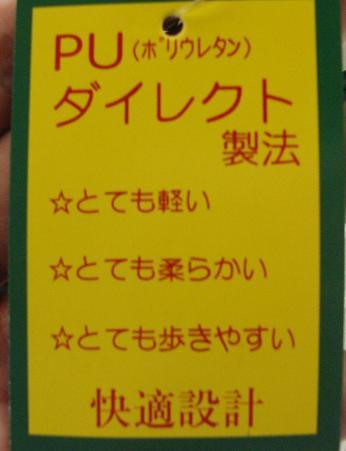 PU(ポリウレタン)
ダイレクト
製法
☆とても軽い
☆とても柔らかい
☆とても歩きやすい
快適設計